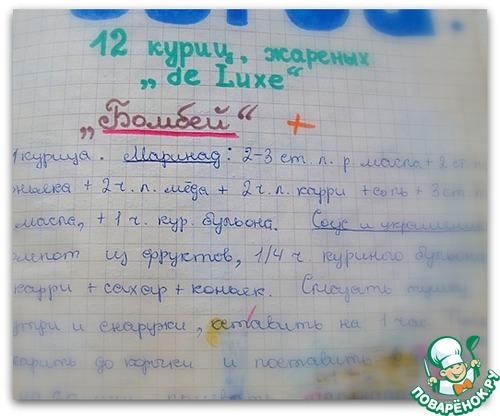 12 куриц, жареных
„de Luxe“
„Бомбей“ +
1 курица. Маринад: 2-3 ст. л. р. масла + 2 ст.
коньяка + 2 ч. л. мёда + 2 ч. л. карри + соль + 3 ст.
масла, + 1 ч. кур. бульона. Соус и украшение
компот из фруктов, 1/4 ч. куриного бульона
карри + сахар + коньяк. Смазать
и снаружи, оставить на 1 час.
жарить до корочки и поставить
ПОВАРЁНОК.РУ